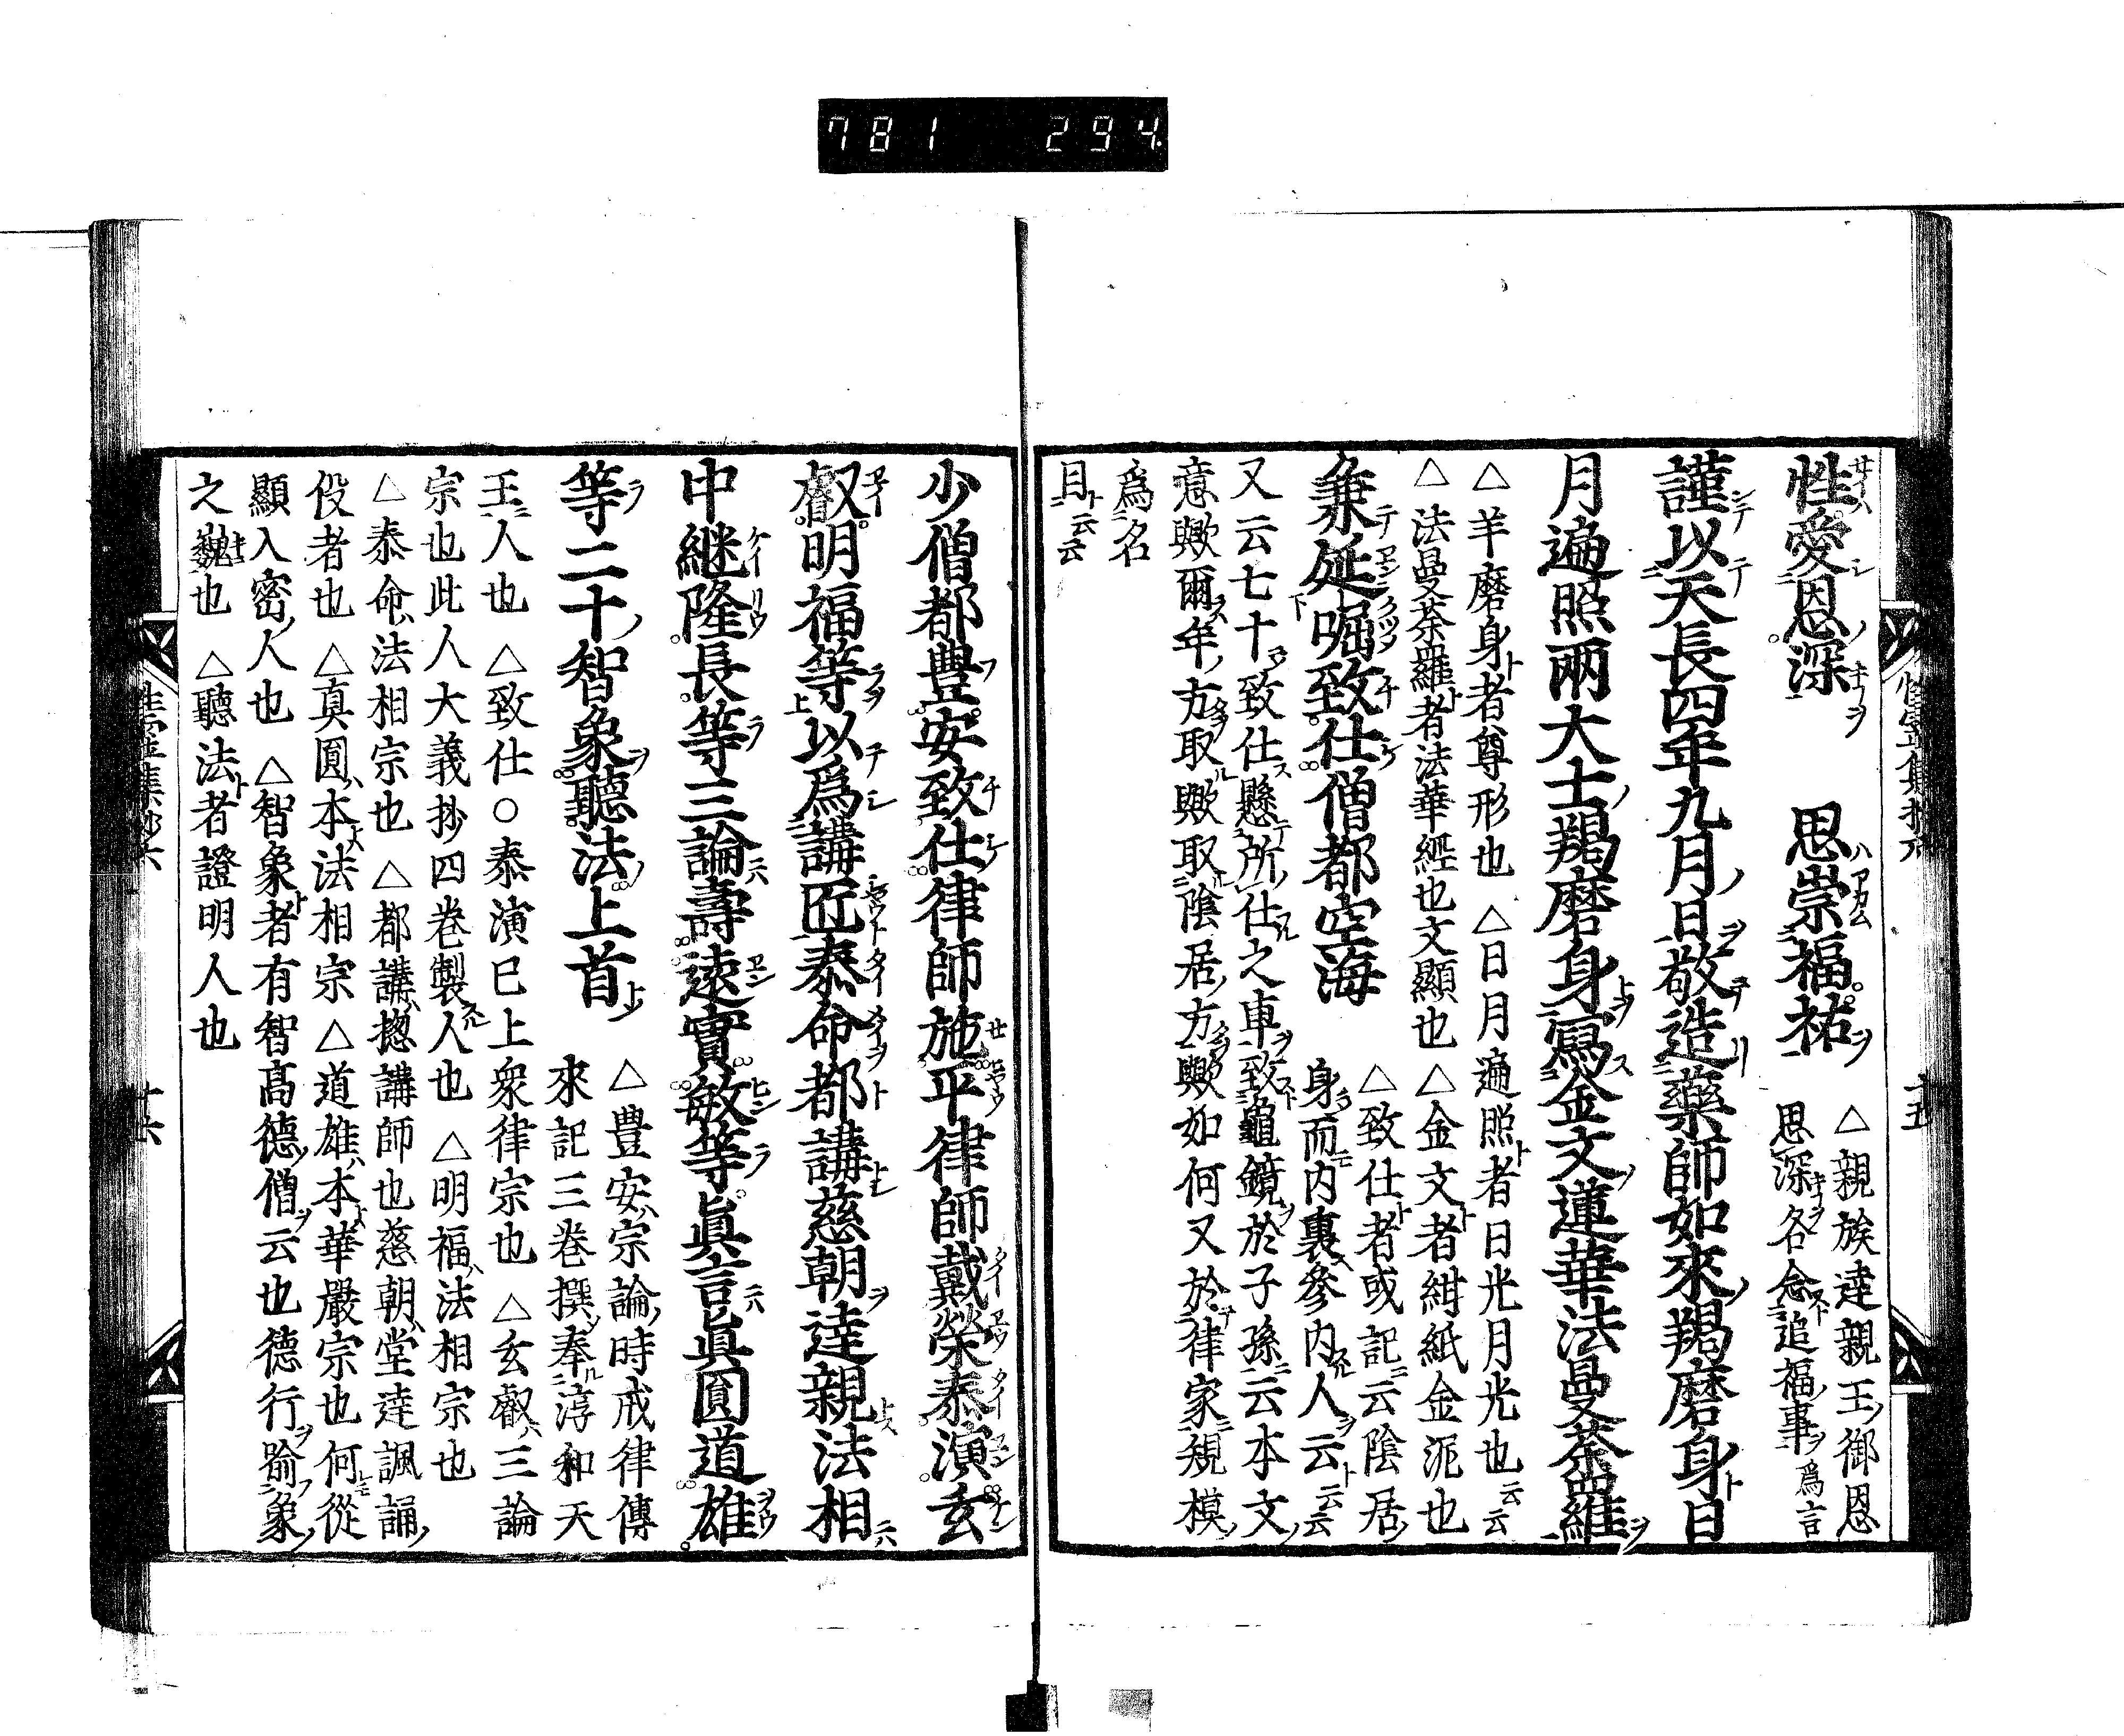 781 294
性愛恩深 思崇福祐 △親族達親王御恩
思深各念追福事爲言
謹以天長四年九月日敬造藥師如來羯磨身日
月遍照兩大士羯磨身寫金文蓮華法曼荼羅
△羊磨身者尊形也 △日月遍照者日光月光也云云
△法曼荼羅者法華經也文顯也 △金文者紺紙金泥也
兼延𡌛致仕僧都空海 △致仕者或記云陰居
身而内裏參内人云云
又云七十致仕懸所仕之車致龜鏡於子孫云本文
意歟爾年方取歟取陰居方歟如何又於律家規模
爲名
目云云
少僧都豊安致仕律師施平律師戴榮泰演玄
叡明福等以爲講匠泰命都講慈朝達親法相
中継隆長等三論壽遠實敏等眞言眞圓道雄
等二十智象聽法上首 △豊安宗論時戒律傳
來記三巻撰奉淳和天
王人也 △致仕○泰演已上衆律宗也 △玄叡三論
宗也此人大義抄四巻製人也 △明福法相宗也
△泰命法相宗也 △都講揔講師也慈朝堂達諷誦
役者也 △真圓本法相宗 △道雄本華嚴宗也何從
顯入密人也 △智象者有智高德僧云也德行踰象
之巍也 △聽法者證明人也